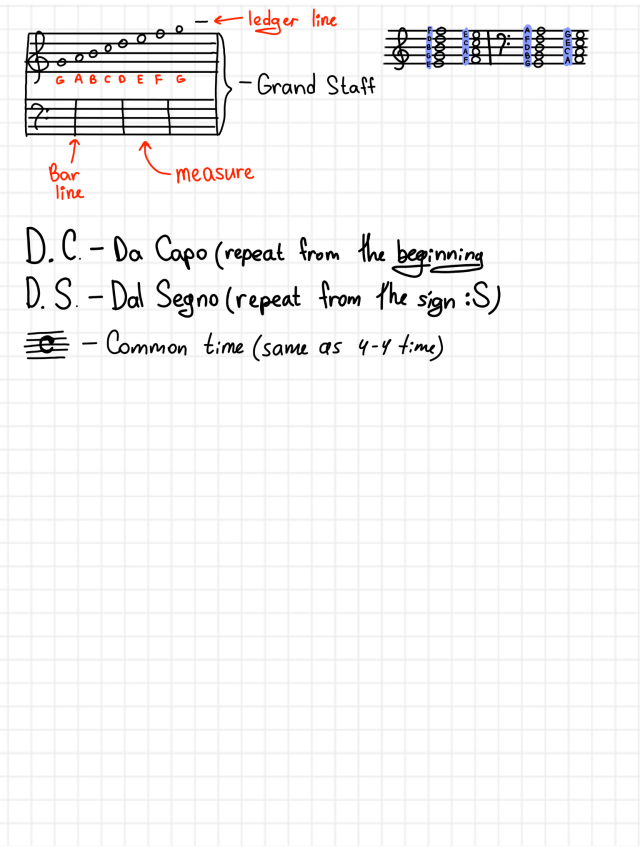 ledger line
F E A G
D C F E
B A D C
G F B A
E G
G A B C D E F G
- Grand Staff
Bar
line
measure
D.C. - Da Capo (repeat from the beginning
D.S. - Dal Segno (repeat from the sign :S)
C - Common time (same as 4-4 time)